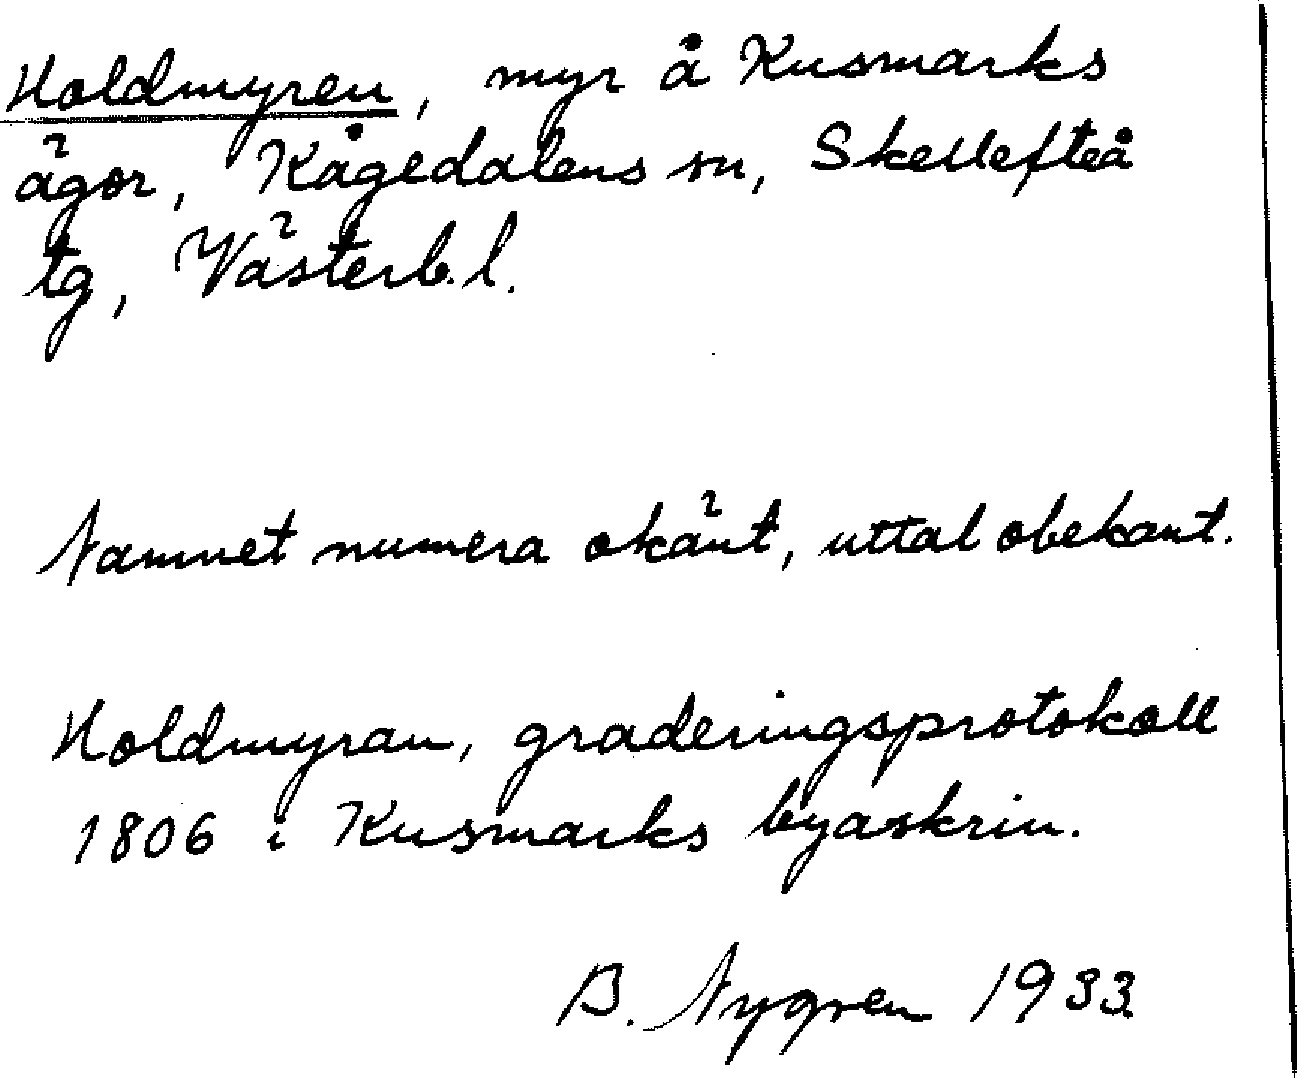 Holdmyren, myr å Kusmarks
ägor, Kågedalens sn, Skellefteå
tg, Västerb. l.
Namnet numera okänt, uttal obekant.
Holdmyran, graderingsprotokoll
1806 i Kusmarks byaskrin.
B. Nygren 1933.